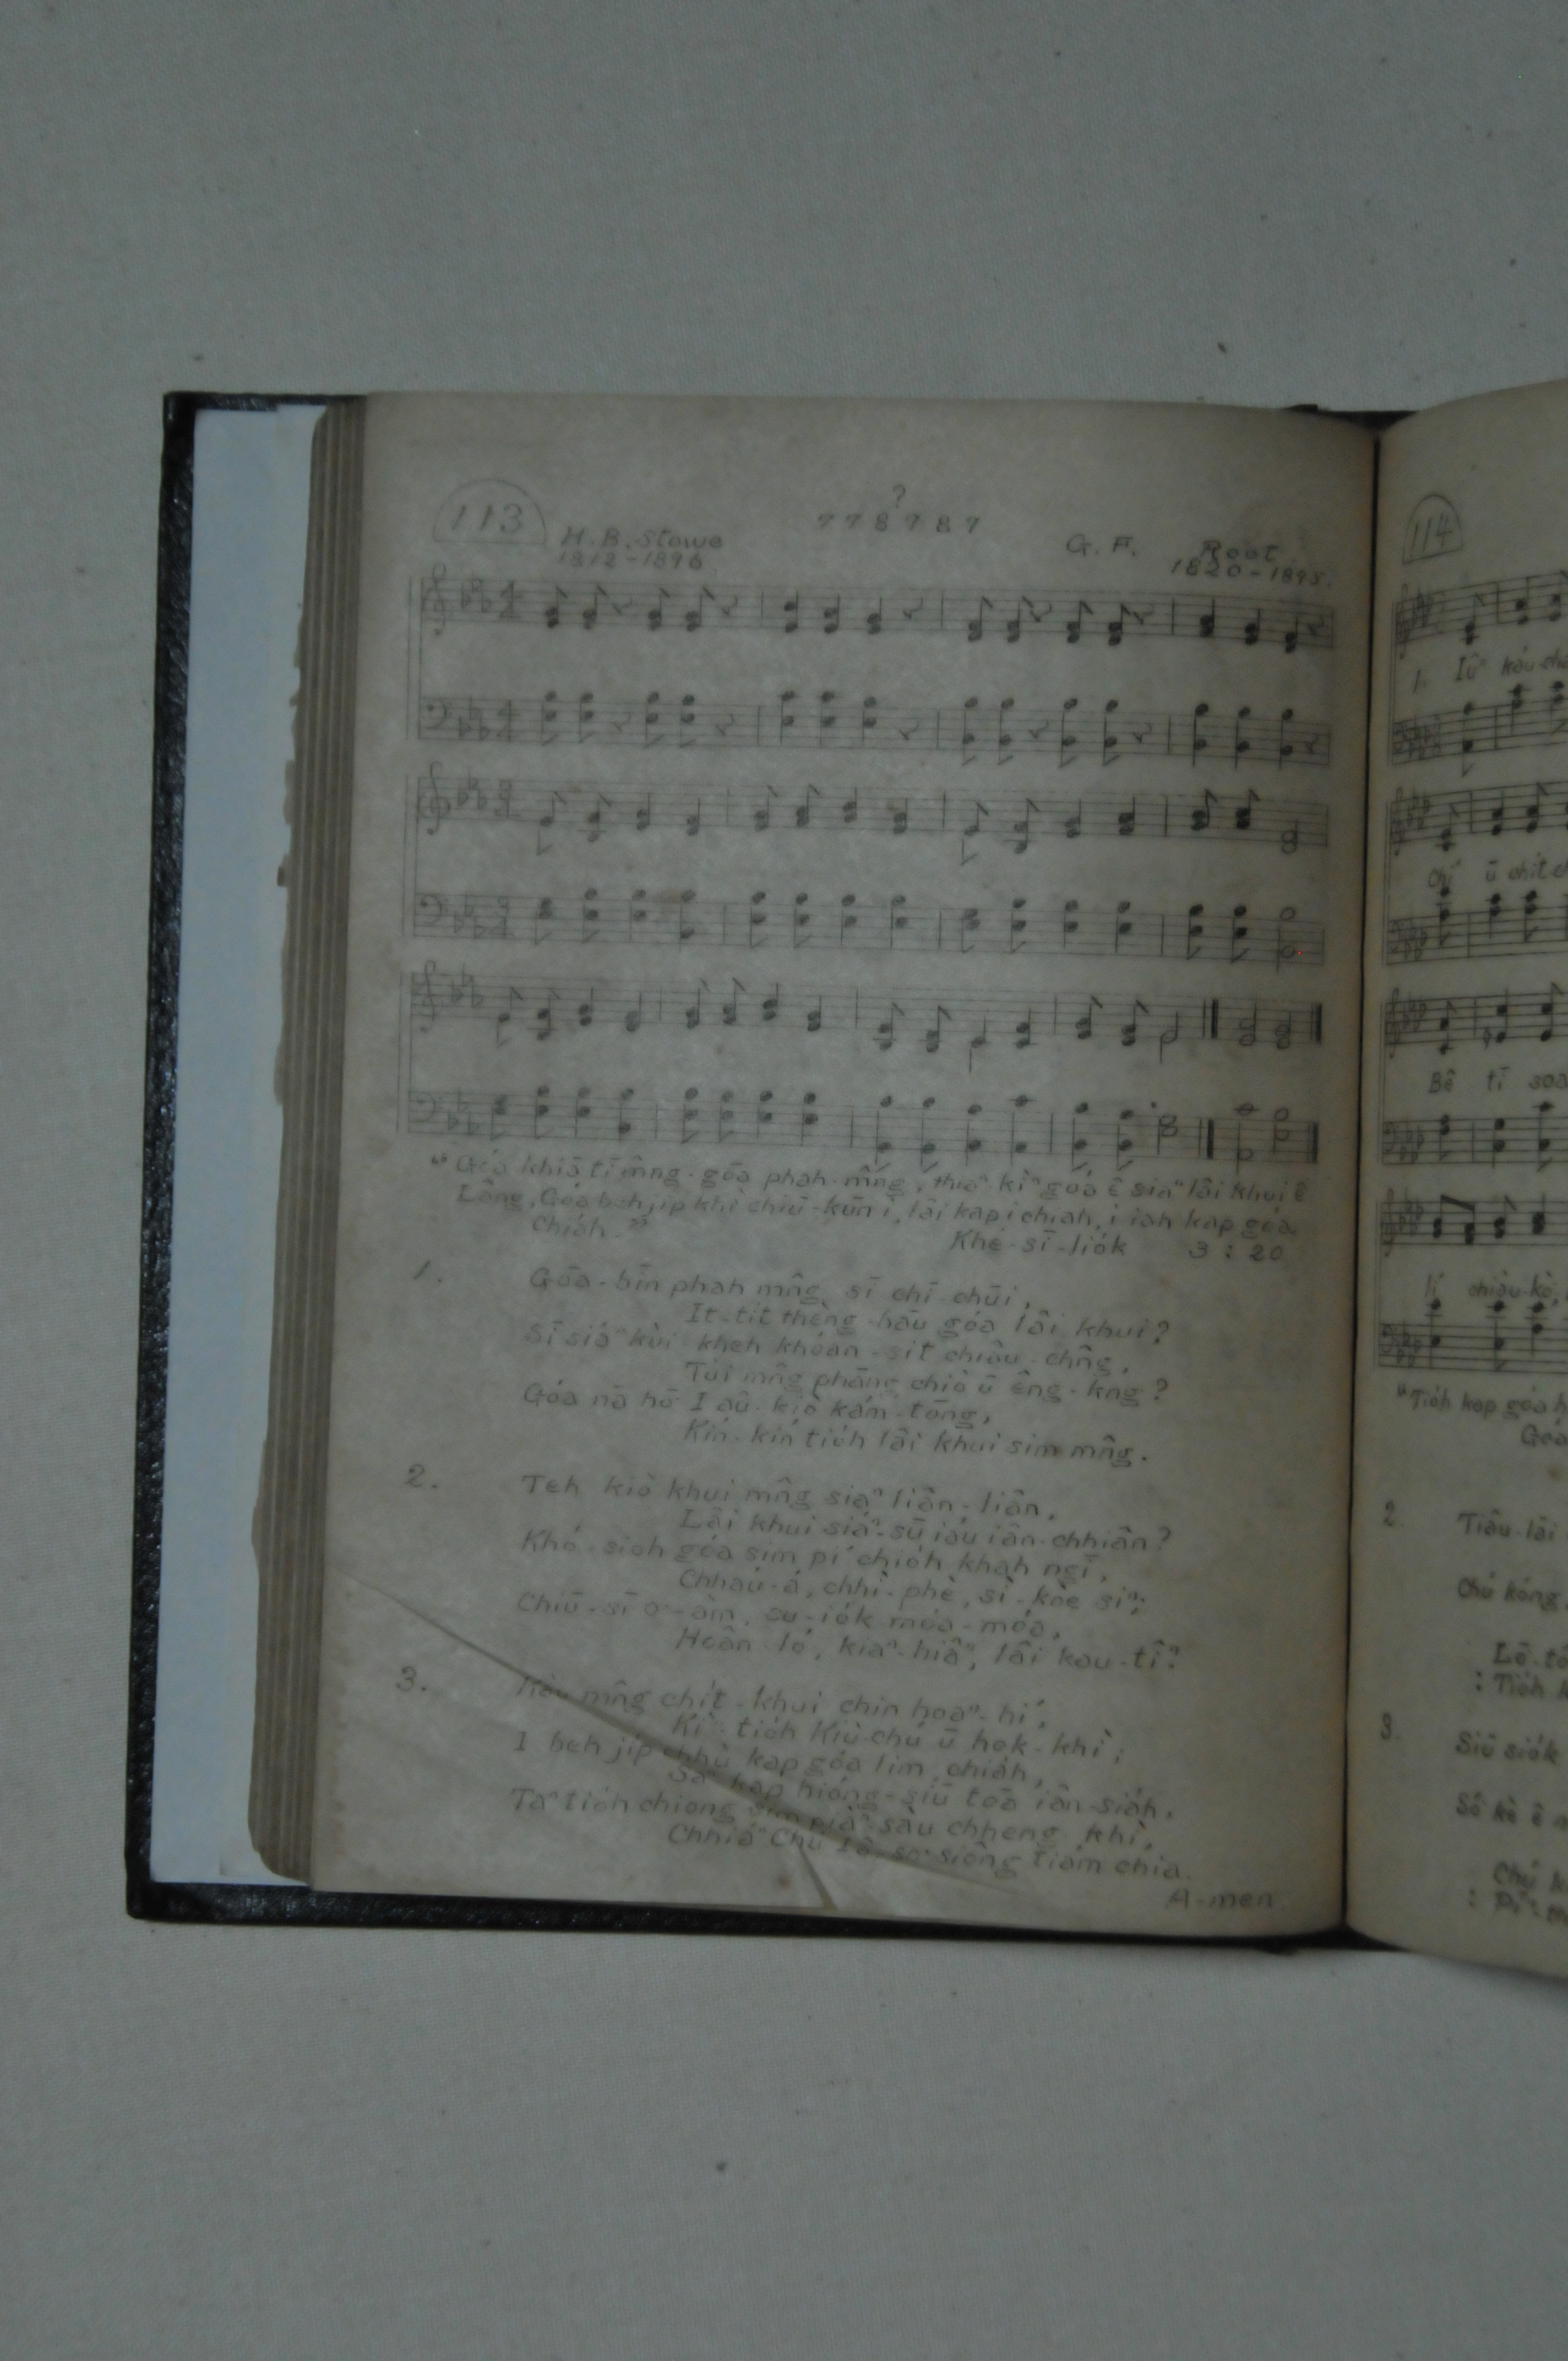 113
?
7 7 8 7 8 7
H. B. Stowe
1812-1896
G. F. Root
1820-1895.
"Góa khiā tī mn̂g-gōa phah-mn̂g, thiaⁿ-kìⁿ góa ê siaⁿ lâi khui ê
Lâng, Góa beh ji̍p khì chiū-kūn i, lâi kap i chia̍h, i iah kap góa
Chia̍h."
Khé-sī-lio̍k 3 : 20
1.
Gōa-bīn phah mn̂g sī chī-chūi,
It-ti̍t thèng-hāu góa lâi khui?
Sī siáⁿ kùi-kheh khóan-sit chiâu-chn̂g,
Tùi mn̂g phāng chiò ū êng-kng?
Góa nā hō͘ I aû-kiò kám-tōng,
Kín-kín tio̍h lâi khui sim mn̂g.
2.
Teh kiò khui mn̂g siaⁿ liân-liân,
Lâi khui siáⁿ-sū iáu iân-chhiân?
Khó-sioh góa sim pí chio̍h khah ngī,
Chhaú-á, chhì-phè, sì-kòe siⁿ;
Chiū-sī o͘-àm, su-io̍k móa-móa,
Hoân-ló, kiaⁿ-hiâⁿ, lâi kau-tîⁿ?
3.
Kàu mn̂g chi̍t-khui chin hoaⁿ-hí,
Kìⁿ-tio̍h Kiù-chú ū hok-khì;
I beh ji̍p chhù kap góa lim chia̍h,
Saⁿ kap hióng-siū toā iân-sia̍h,
Taⁿ tio̍h chiong piàⁿ-sàu chheng-khì,
Chhiáⁿ Chú Iâ-so͘ siông tiàm chia.
A-men
114
1. Iûⁿ káu-cha
Chi̍ ū chi̍t-ch
Bê tī soa
lí chiàu-kò͘,
"Tio̍h kap góa h
Goa
2. Tiâu-lāi
Chú kóng,
Lō-tō
: Tio̍h k
3. Siū sio̍k
Só͘ kè ê n
Chú k
: Pí